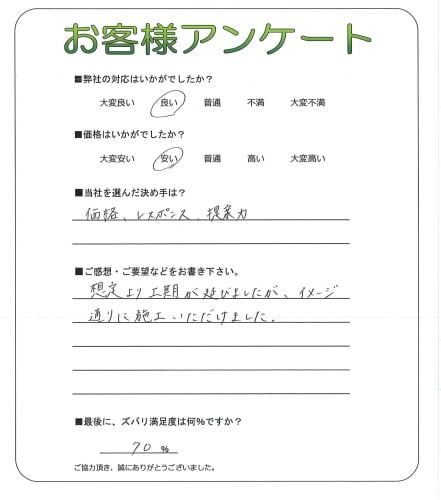 お客様アンケート
■弊社の対応はいかがでしたか？
大変良い 良い 普通 不満 大変不満
■価格はいかがでしたか？
大変安い 安い 普通 高い 大変高い
■当社を選んだ決め手は？
価格、レスポンス、提案力
■ご感想・ご要望などをお書き下さい。
想定より工期が延びましたが、イメージ
通りに施工いただけました。
■最後に、ズバリ満足度は何％ですか？
70 %
ご協力頂き、誠にありがとうございました。